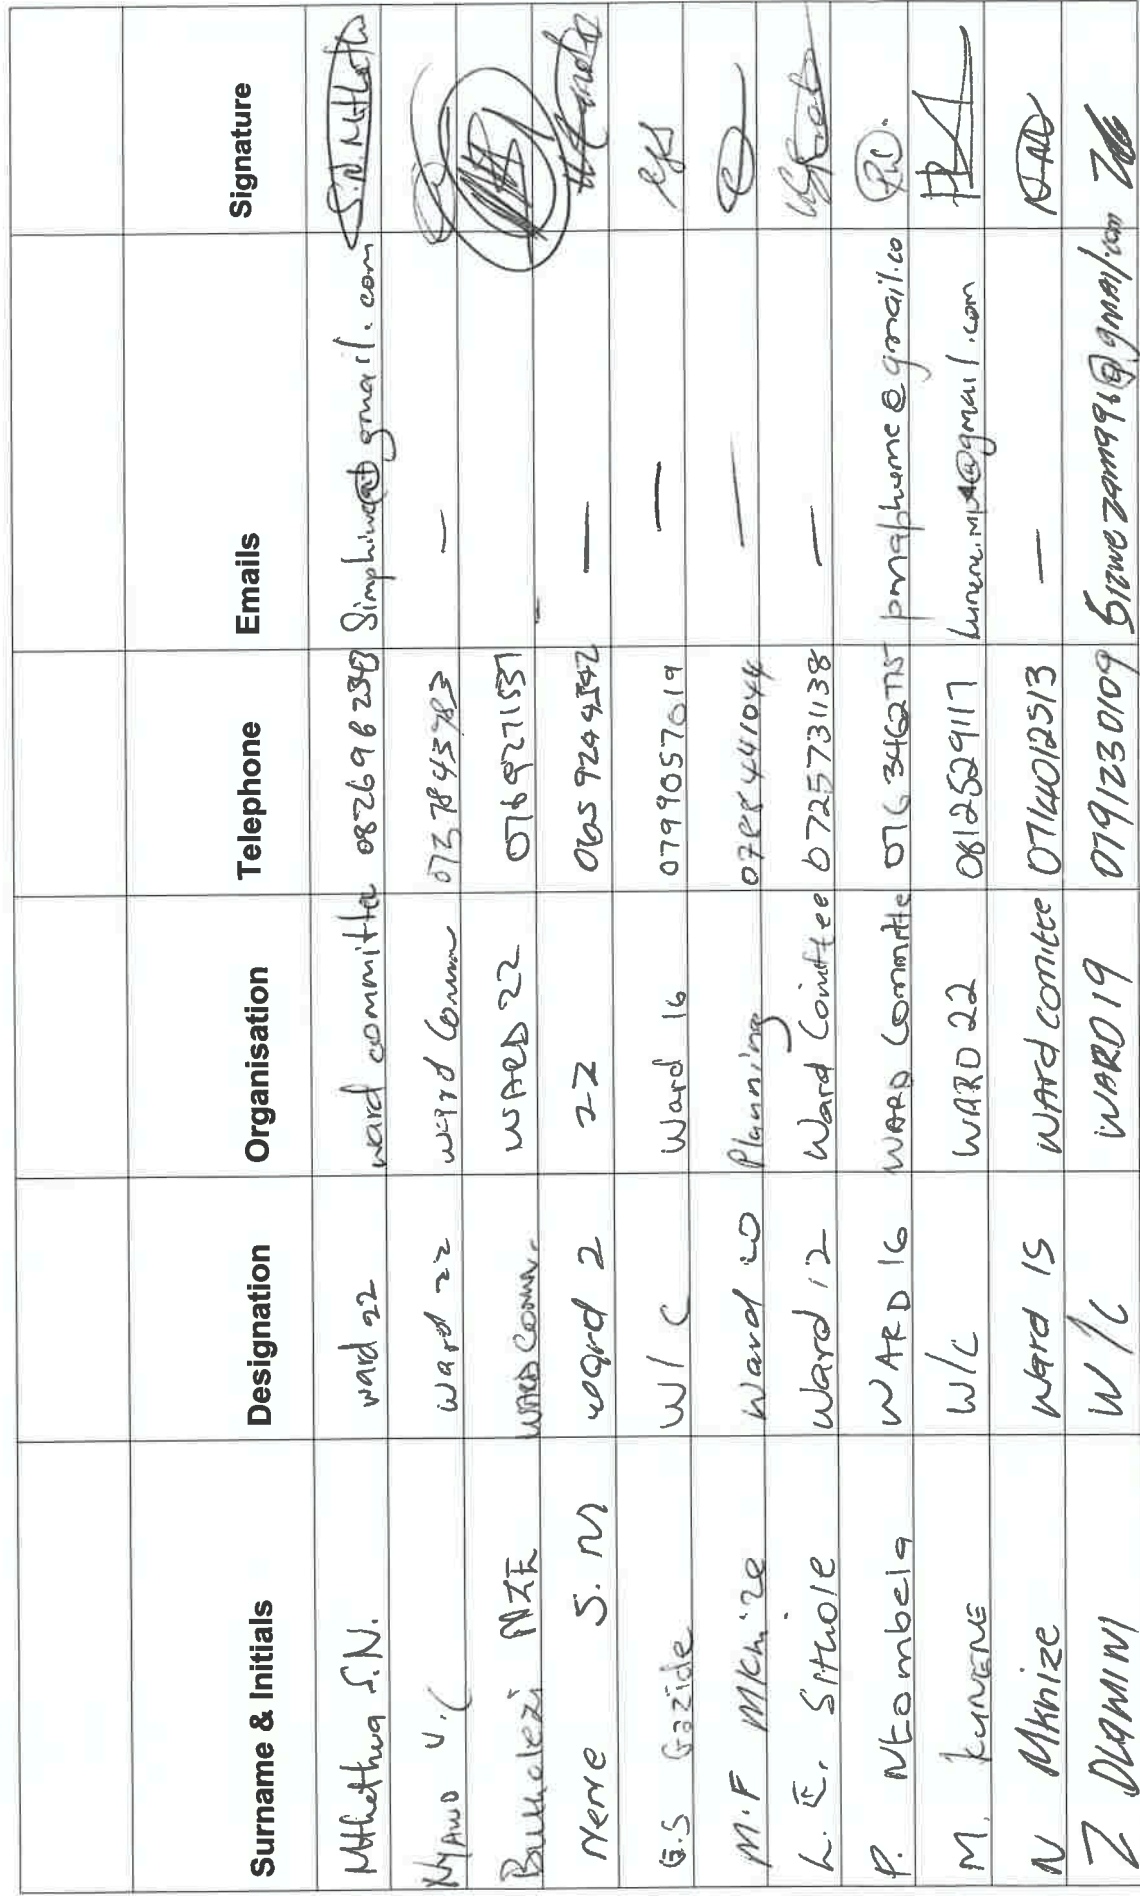 Surname & Initials Designation Organisation Telephone Emails Signature
Mthethwa S.N. ward 22 ward committee 0826962343 Simphiwe@gmail.com S.N. Mthethwa
Nyawo V.C ward 22 ward Comm 0737845783 —
Buthelezi MZE WARD Comm. WARD 22 0769271537 -
Nene S. N ward 2 22 0659244542 —
G.S Gazide W/C Ward 16 0799057019 —
M.F Mkhize Ward 20 Planning 0788441044 —
L. E. Sithole Ward 12 Ward Comittee 0725731138 —
P. Ntombela WARD 16 WARD Committe 0763462715 pmaphume@gmail.co
M. KUNENE W/C WARD 22 0812529117 kunene.mp4@gmail.com
N Mkhize Ward 15 Ward comitee 0714012513 —
Z DLAMINI W/C WARD 19 0791230109 Sizwezama996@gmail.com